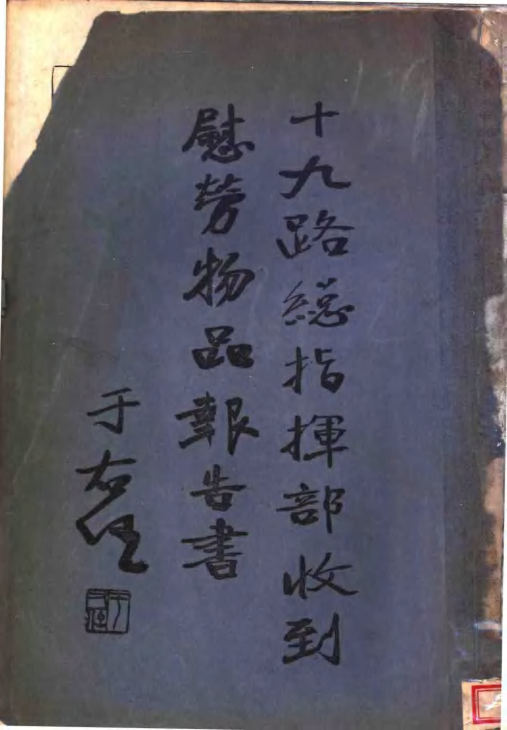 十九路總指揮部收到
慰勞物品報告書
于右任